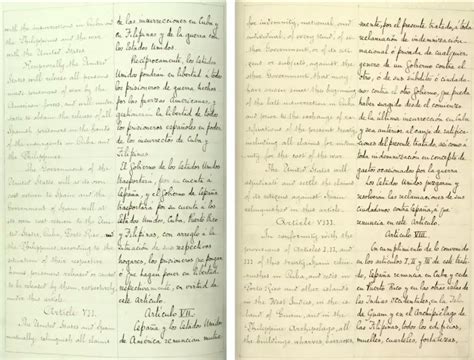 with the insurrections in Cuba and
the Philippines and the war
with the United States.
Reciprocally the United
States will release all persons
made prisoners of war by the
American forces, and will under-
take to obtain the release of all
Spanish prisoners in the hands
of the insurgents in Cuba and
the Philippines.
The Government of the
United States will at its own
cost return to Spain and the
Government of Spain will at
its own cost return to the United
States, Cuba, Porto Rico, and
the Philippines, according to the
situation of their respective
homes, prisoners released or caused
to be released by them, respectively,
under this article.
Article VII.
The United States and Spain
mutually relinquish all claims
de las insurrecciones en Cuba y
en Filipinas y de la guerra con
los Estados Unidos.
Recíprocamente, los Estados
Unidos pondrán en libertad á todos
los prisioneros de guerra hechos
por las fuerzas Americanas, y
gestionarán la libertad de todos
los prisioneros españoles en poder
de los insurrectos de Cuba y
Filipinas.
El Gobierno de los Estados Unidos
trasportará, por su cuenta á
España, y el Gobierno de España
trasportará por su cuenta á los
Estados Unidos, Cuba, Puerto Rico
y Filipinas, con arreglo á la
situación de sus respectivos
hogares, los prisioneros que pongan
ó que hagan poner en libertad
respectivamente, en virtud de
este artículo.
Artículo VII.
España y los Estados Unidos
de América renuncian mutua-
for indemnity, national and
individual, of every kind, of either
Government, or of its citizens or
subjects, against the other
Government, that may
have arisen since the
beginning of the late insurrection
in Cuba and
prior to the exchange of rat-
ifications of the present treaty,
including all claims for indem-
nity for the cost of the war.
The United States will
adjudicate and settle the claims
of its citizens against Spain
relinquished in this article.
Article VIII.
In conformity with the
provisions of Articles I, II, and
III of this treaty, Spain relin-
quishes in Cuba, and cedes in
Porto Rico and other islands
in the West Indies, in the is-
land of Guam, and in the
Philippine Archipelago, all
the buildings,
mente, por el presente tratado, á toda
reclamación de indemnización
nacional ó privada de cualquier
género de un Gobierno contra el
otro, ó de sus súbditos ó ciudada-
nos contra el otro Gobierno, que pueda
haber surgido desde el comienzo
de la última insurrección en Cuba
y sea anterior al canje de ratifica-
ciones del presente tratado, así como á
toda indemnización en concepto de
gastos ocasionados por la guerra.
Los Estados Unidos juzgarán y
resolverán las reclamaciones de sus
ciudadanos contra España, á que
renuncia en este artículo.
Artículo VIII.
En cumplimiento de lo convenido
en los artículos I, II y III de este trata-
do, España renuncia en Cuba y cede
en Puerto Rico y en las otras islas de
las Indias Occidentales, en la Isla
de Guam y en el Archipiélago de
las Filipinas, todos los edificios,